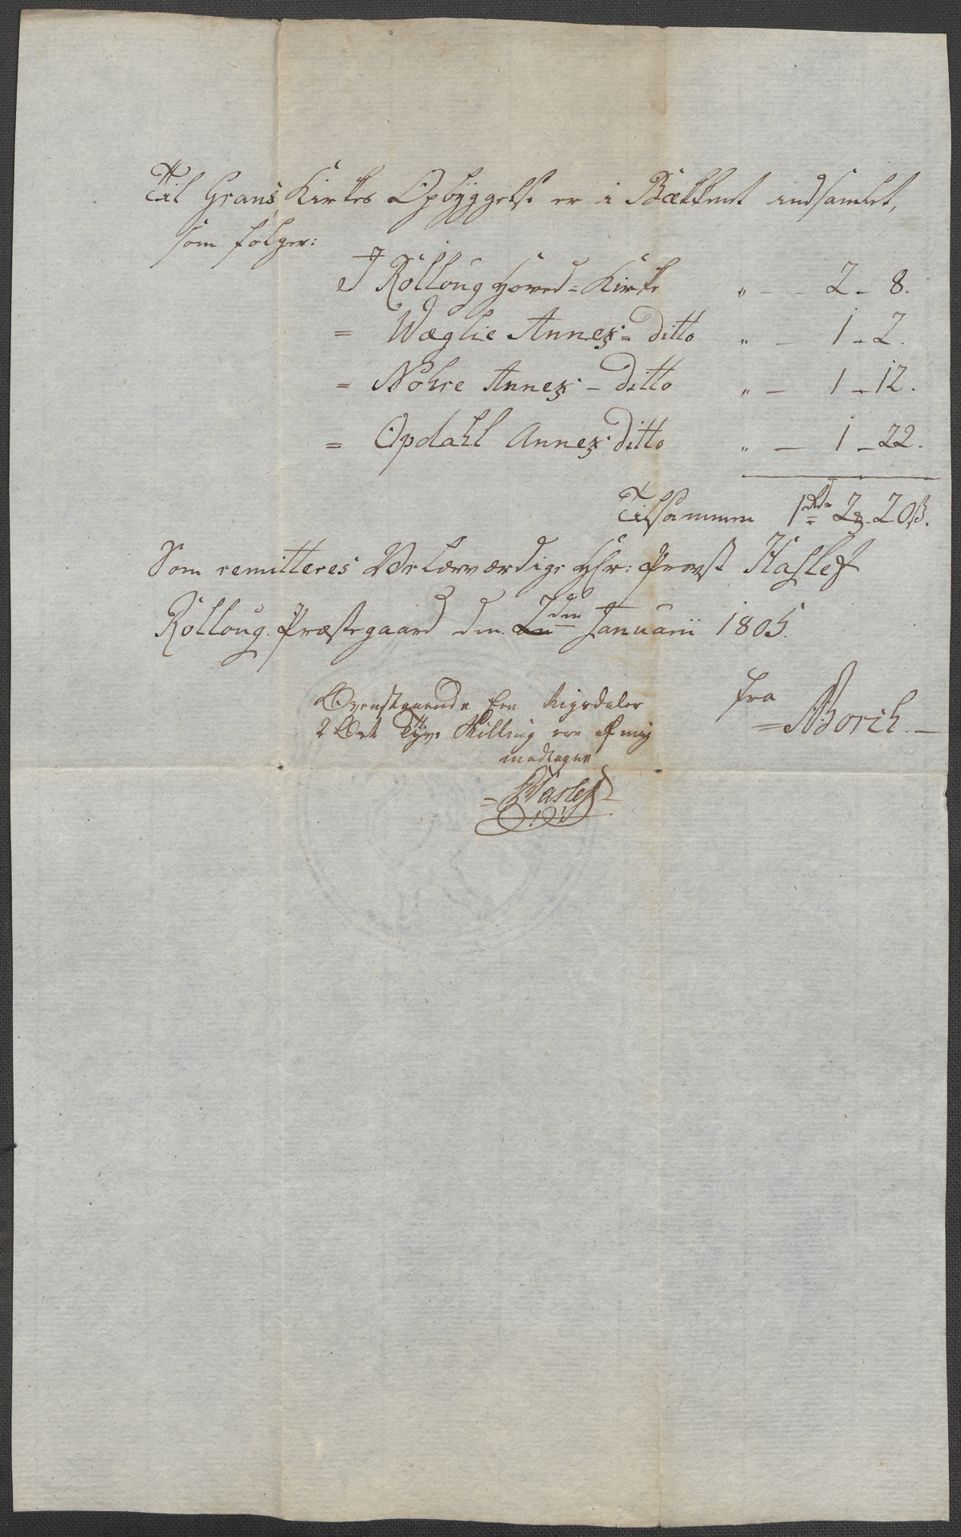 Til Grans Kirkes Opbÿggelse er i Bækkenet indsamlet,
som følger:
I Rolloug Hoved=Kirke " — 2 - 8.
= Wæglie Annex = ditto " — 1 - 2.
= Nohre Annex - ditto " — 1 - 12.
= Opdahl Annex ditto " — 1 - 22.
Tilsammen 1 rdlr 2 - 20 ß.
Som remitteres Velærværdige Hr: Provst Haslef
Rolloug Præstegaard den 2den Januarii 1805.
fra
= Borch. —
Ovenstaaende Een Rigsdaler
2 Ort Tyve Skilling ere af mig
modtagne
= Haslef